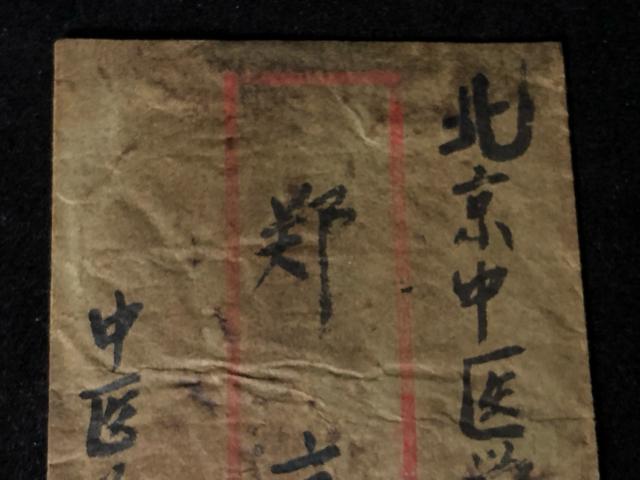 北京中医学
郑
中医